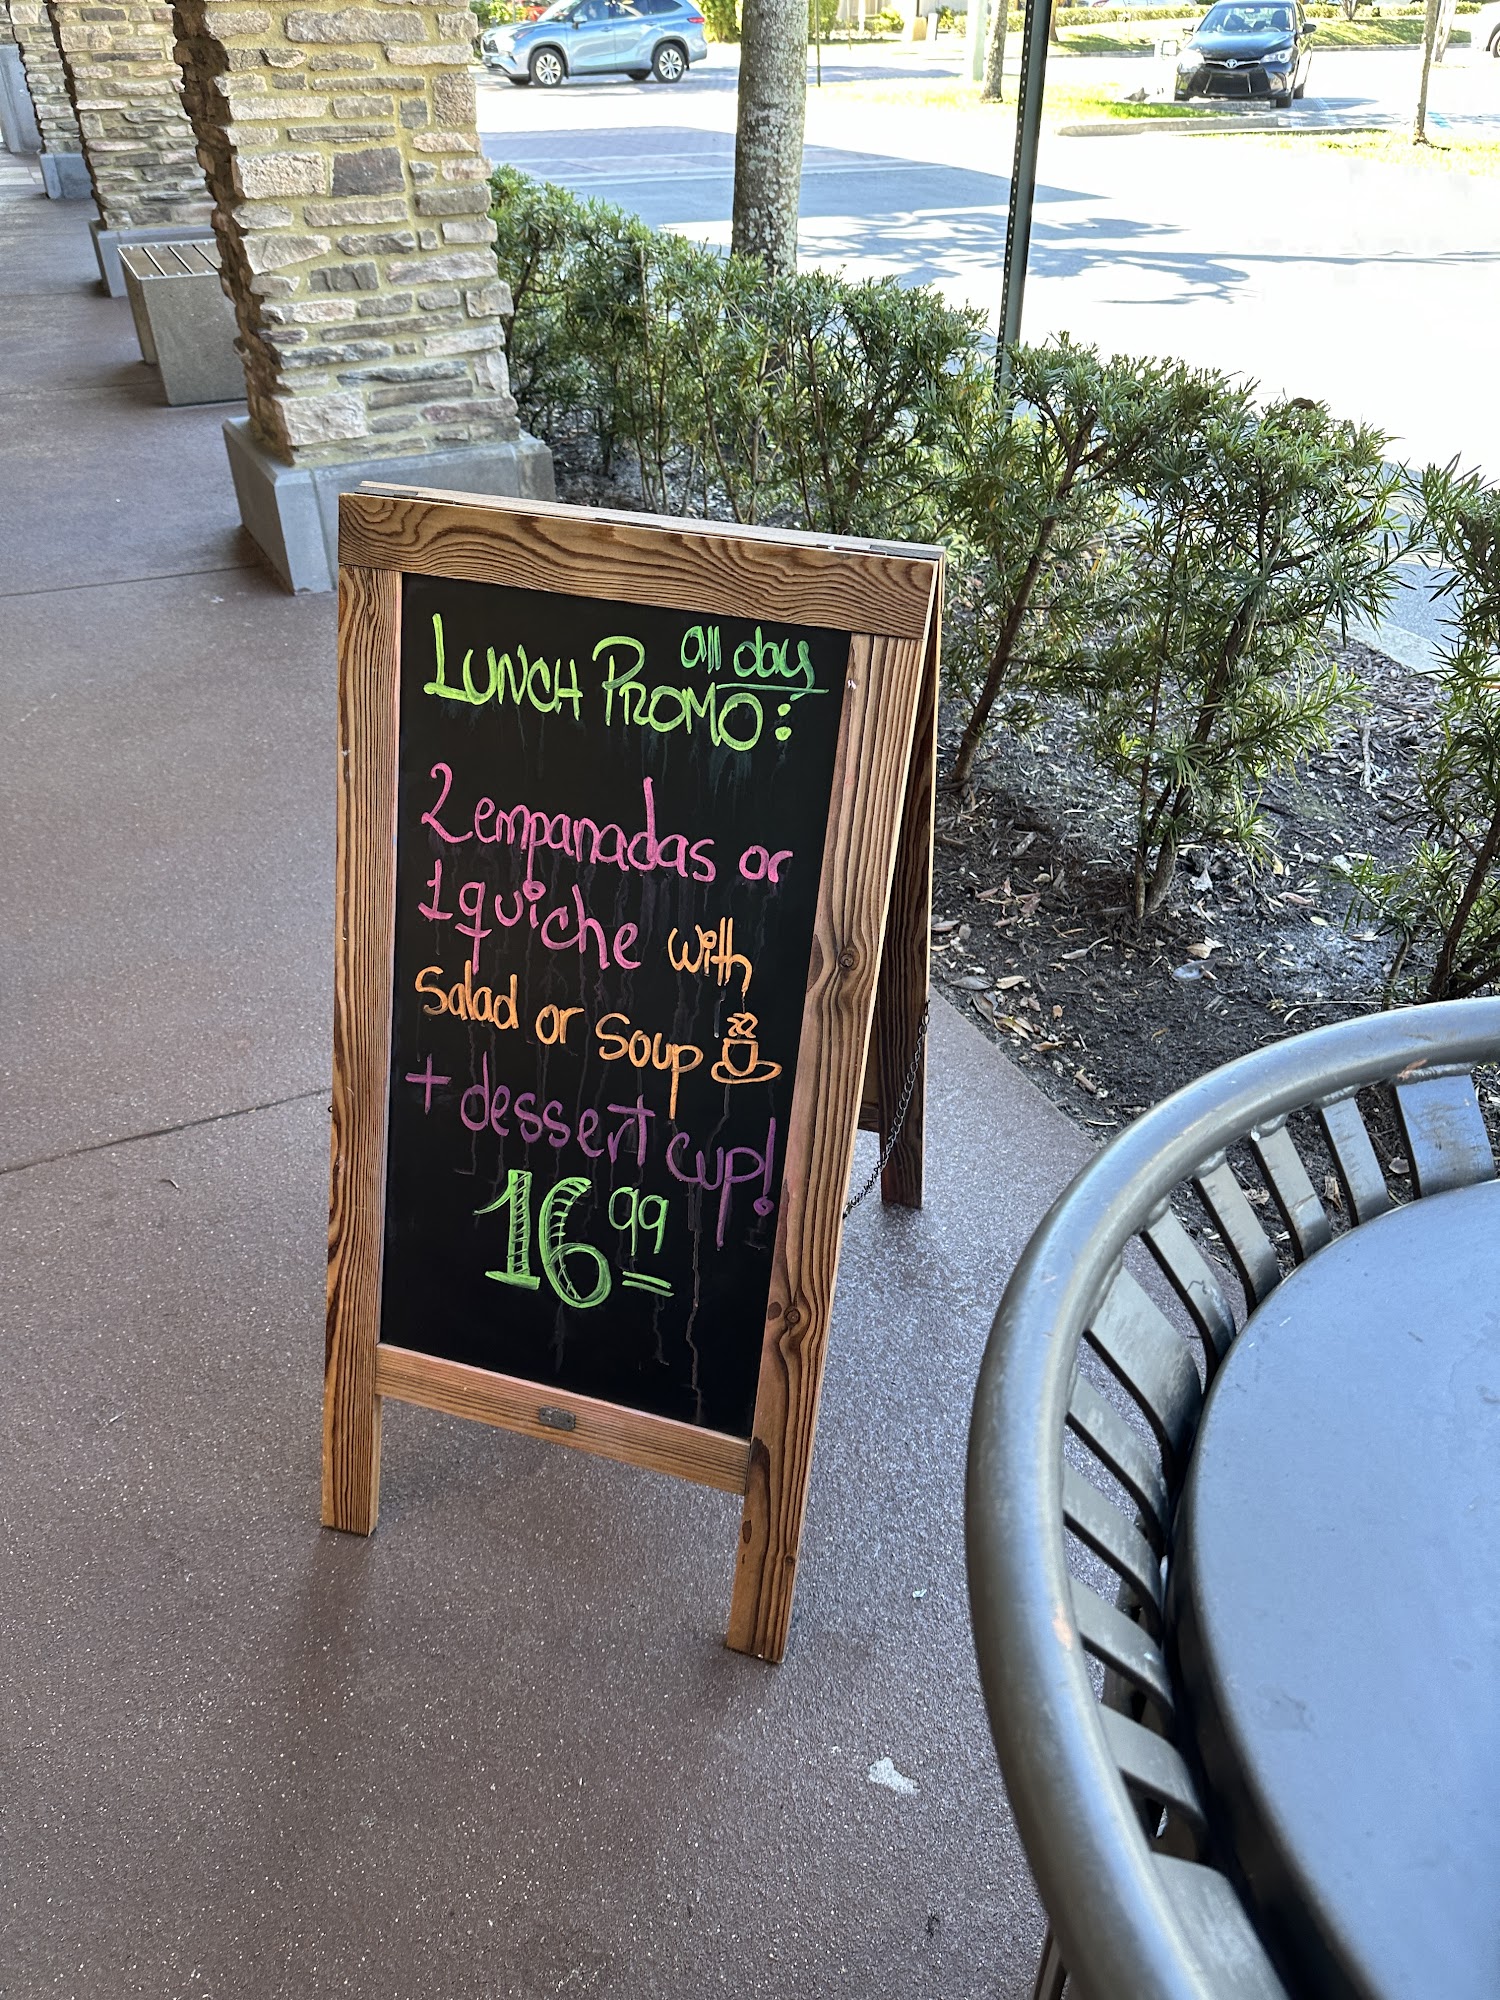 LUNCH PROMO: all day
2 empanadas or
1 quiche with
salad or soup
+ dessert cup!
16 99